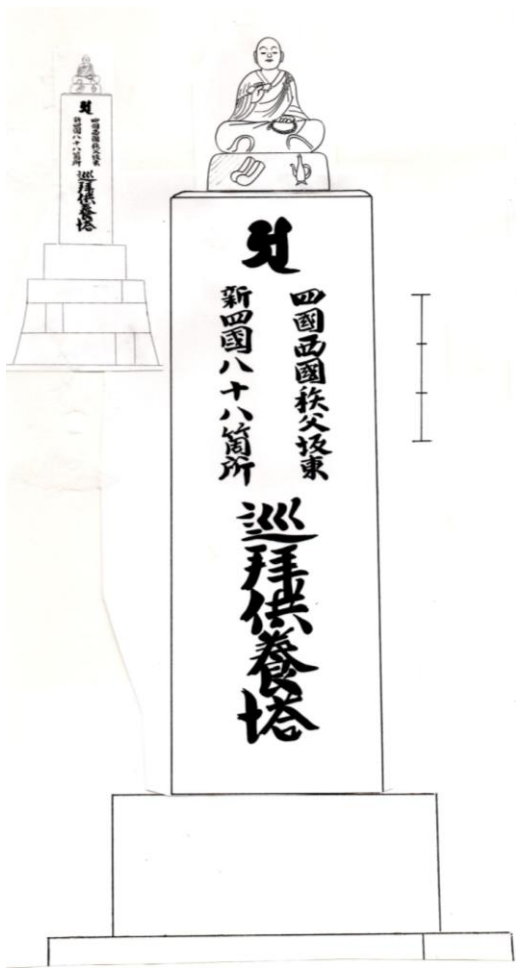 四國西國秩父坂東
新四國八十八箇所
巡拝供養塔
四國西國秩父坂東
新四國八十八箇所
巡拝供養塔